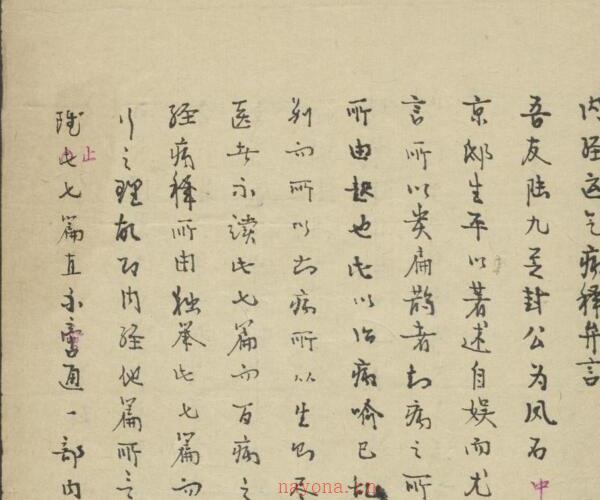 内经运气病释弁言
吾友陆九芝封公为凤石中
京邸生平以著述自娱而尤
言所以贵扁鹊者知病之所
所由起也此以治病喻已
而所以知病所以生则不
医者不读此七篇而百病之
经病释所由独举此七篇而
行之理故即内经他篇所言
止
此七篇直不啻通一部内
nayona.cn